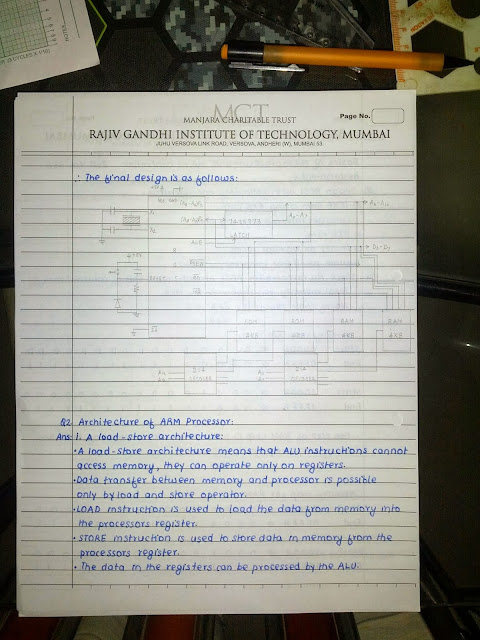 MCT
MANJARA CHARITABLE TRUST
Page No.
RAJIV GANDHI INSTITUTE OF TECHNOLOGY, MUMBAI
JUHU VERSOVA LINK ROAD, VERSOVA, ANDHERI (W), MUMBAI 53.
∴ The final design is as follows:
X1
X2
ALE
74LS373
LATCH
A0-A7
D0-D7
RESET
ROM
4KB
ROM
4KB
RAM
4KB
RAM
4KB
2:4
2:4
Q2. Architecture of ARM Processor:
Ans: 1. A load-store architecture:
• A load-store architecture means that ALU instructions cannot
access memory, they can operate only on registers.
• Data transfer between memory and processor is possible
only by load and store operator.
• LOAD instruction is used to load the data from memory into
the processors register.
• STORE instruction is used to store data in memory from the
processors register.
• The data in the registers can be processed by the ALU.